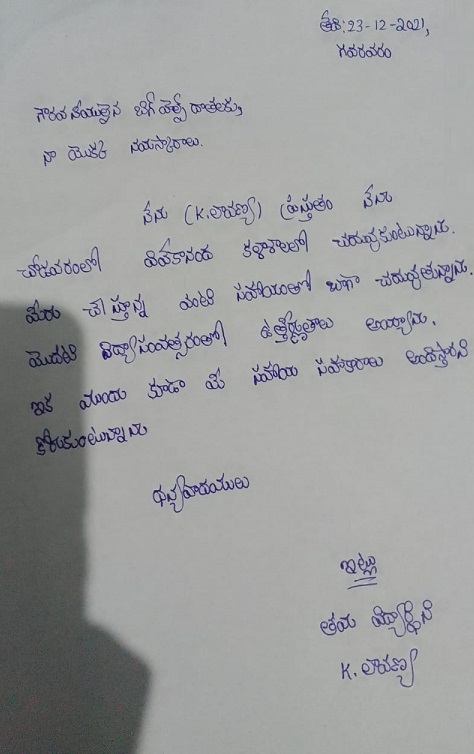 తేది: 23-12-2021,
గవరవరం
గౌరవనీయులైన బిగ్ హెల్ప్ దాతలకు,
నా యొక్క నమస్కారాలు.
నేను (K. లావణ్య) ప్రస్తుతం నేను
చోడవరంలో వివేకానంద కళాశాలలో చదువుకుంటున్నాను.
మీరు చేస్తున్న వంటి సహాయంతో బాగా చదువుతున్నాను.
మొదటి విద్యాసంవత్సరంలో ఉత్తీర్ణతాలు అయ్యాను.
ఇక ముందు కూడా మీ సహాయ సహకారాలు అందిస్తారని
కోరుకుంటున్నాను
ధన్యవాదములు
ఇట్లు
తమ విద్యార్థిని
K. లావణ్య